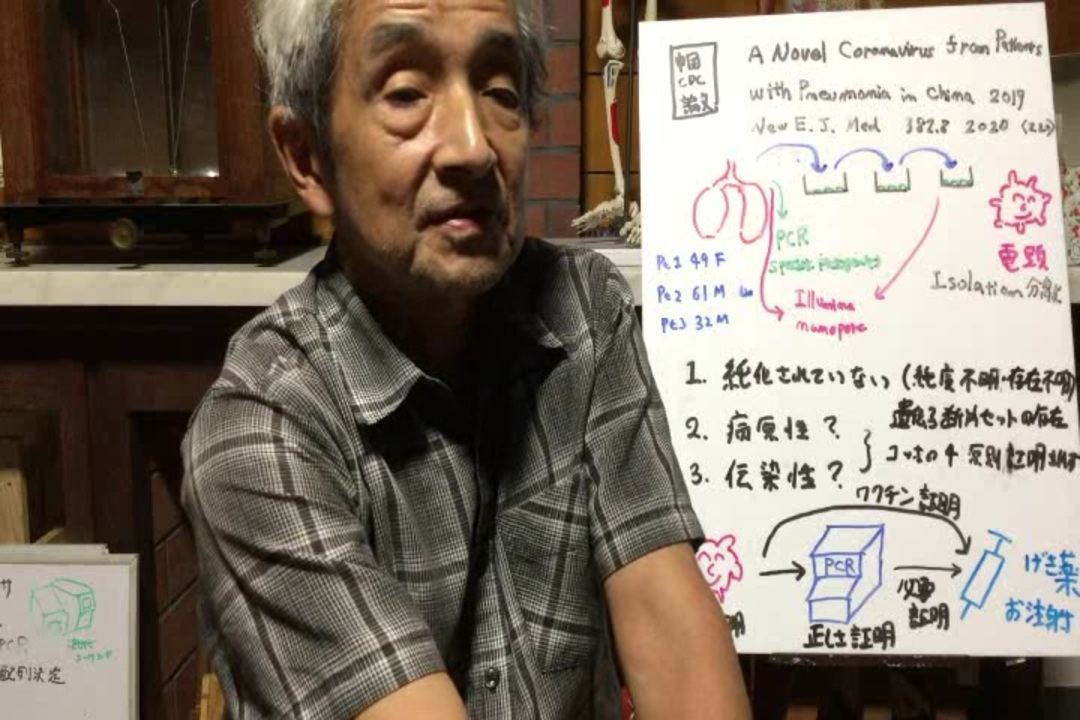 中国
CDC
論文
A Novel Coronavirus from Patients
with Pneumonia in China 2019
New E. J. Med 382.8 2020 (220)
PCR
Pt1 49 F
Pt2 61 M
Pt3 32 M
Illumina
nanopore
電顕
Isolation 分離
1. 純化されていない (純度不明・存在不明)
遺伝子断片セットの存在
2. 病原性?
3. 伝染性?
コッホの4原則証明
ワクチン証明
PCR
必要
証明
正しさ証明
明
げき薬
お注射
サ
PCR
配列決定